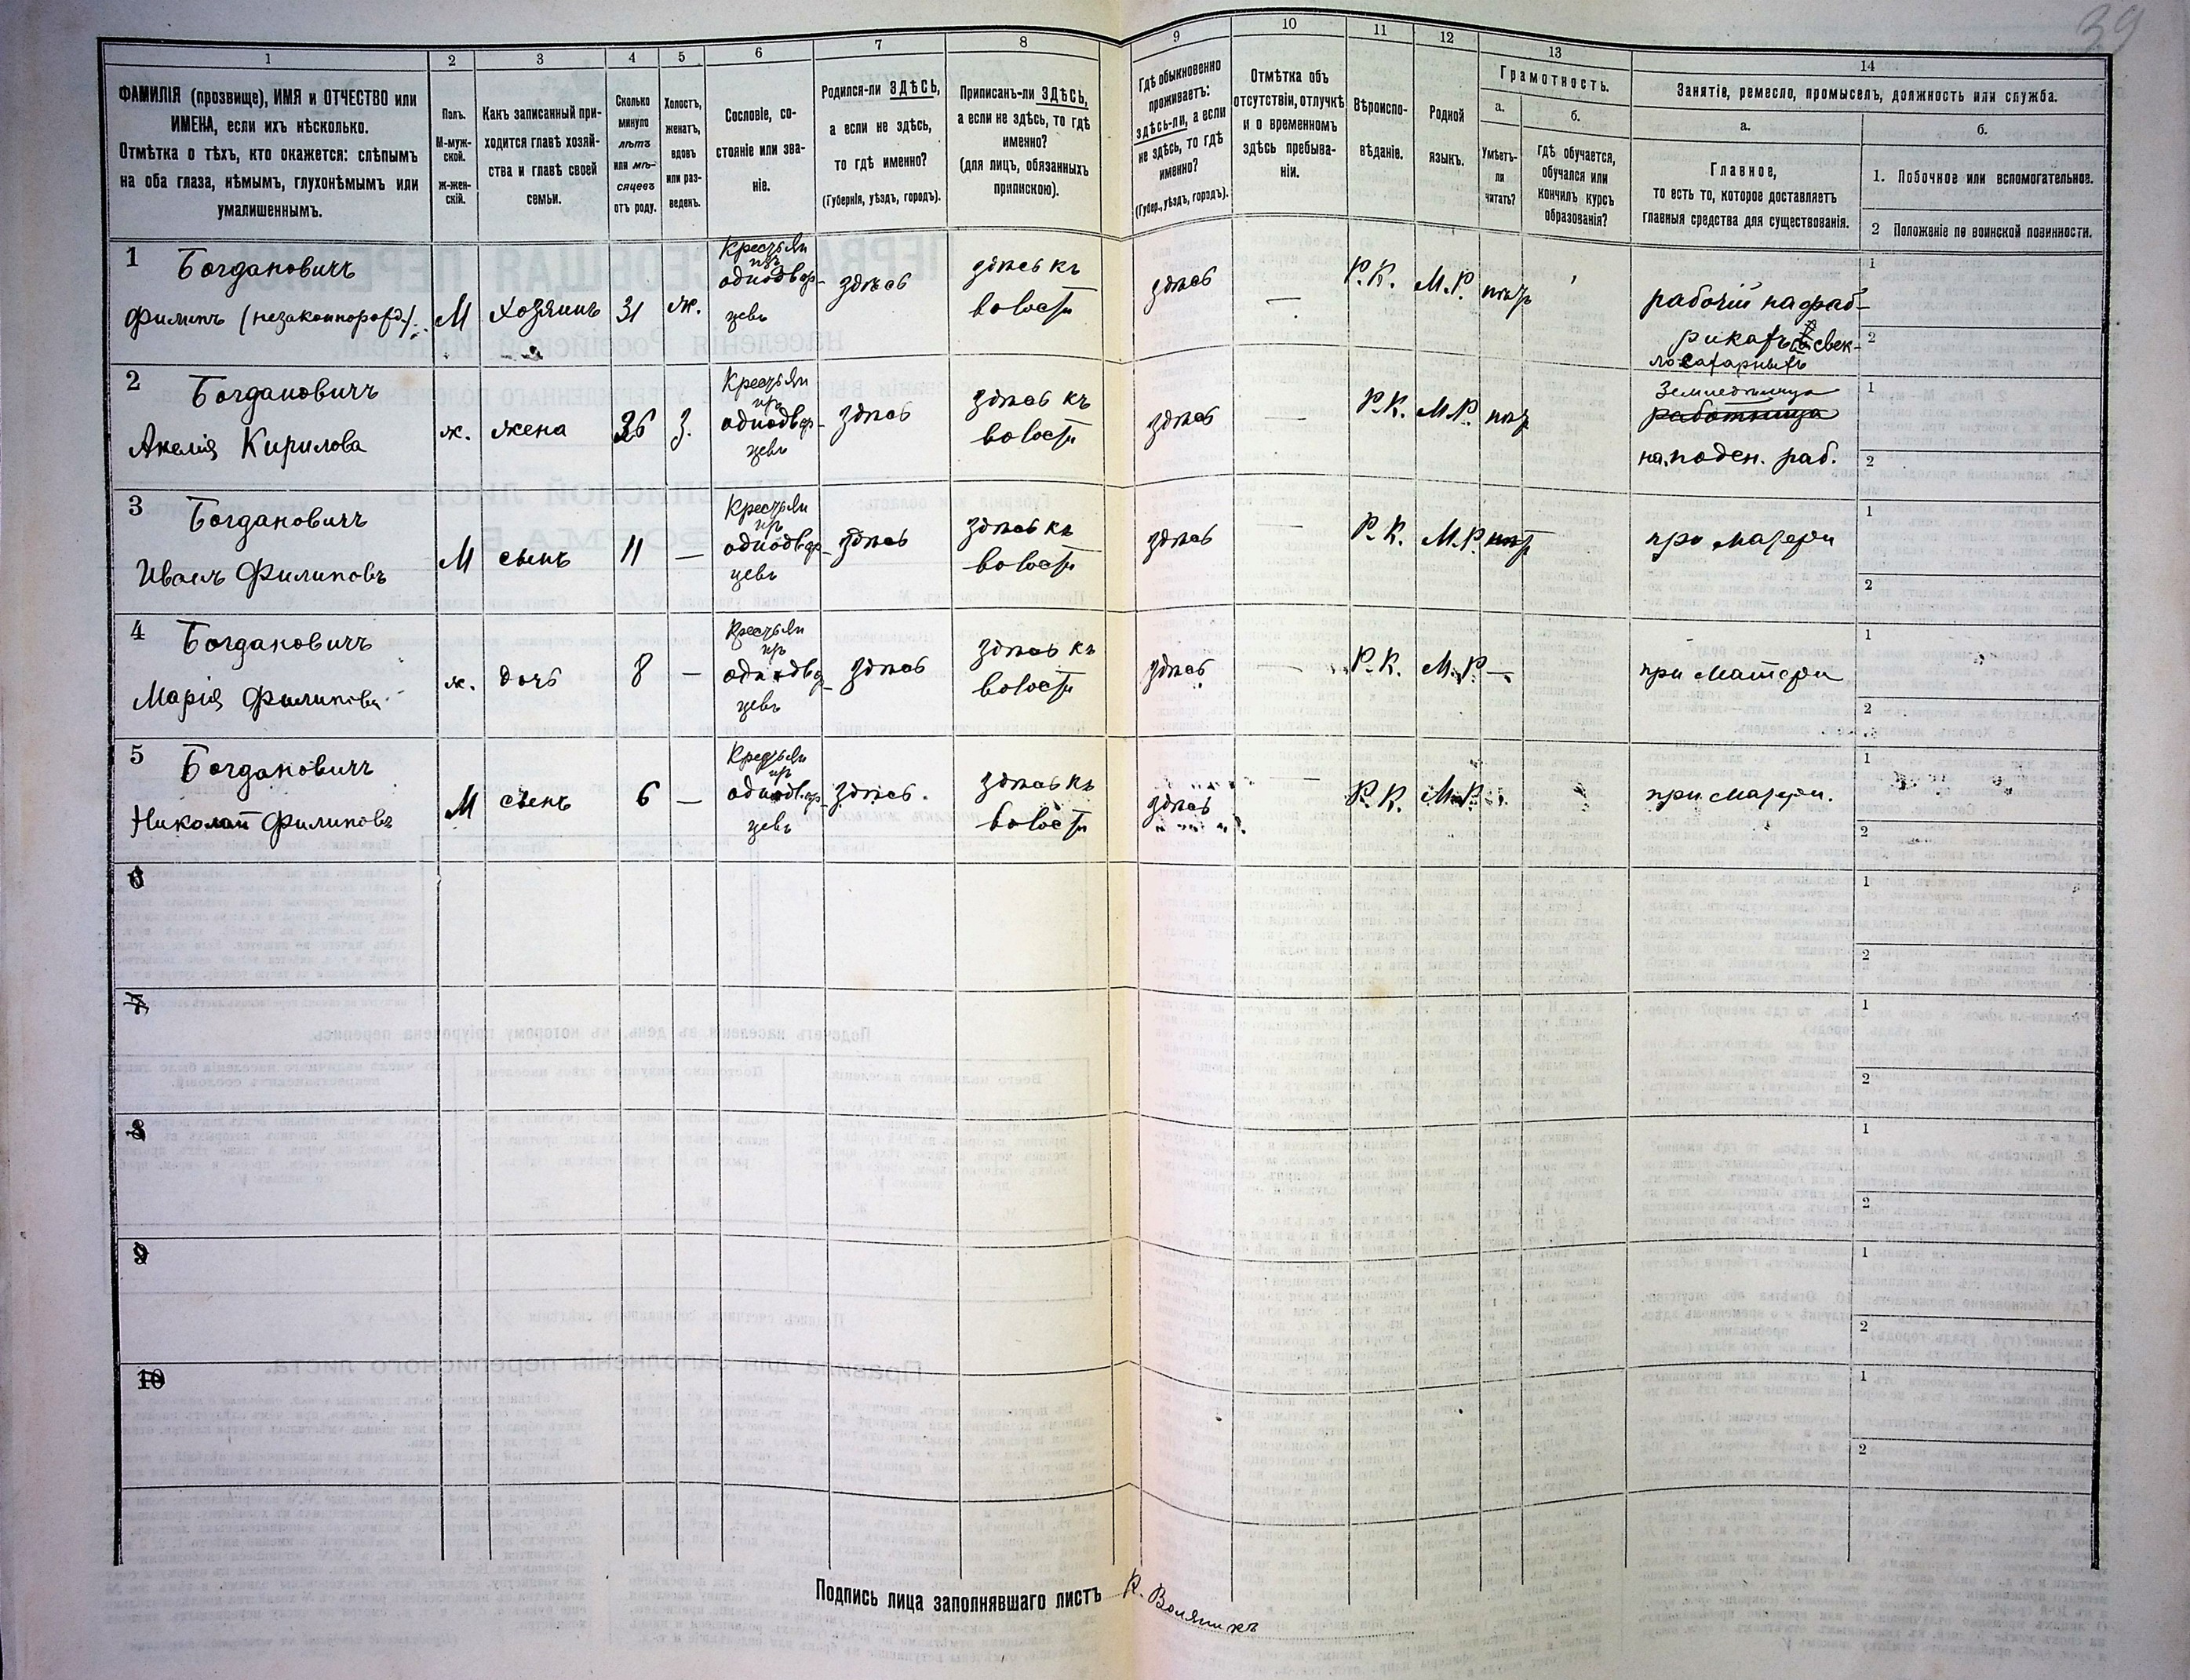 39
1 2 3 4 5 6 7 8 9 10 11 12 13 14
ФАМИЛІЯ (прозвище), ИМЯ и ОТЧЕСТВО или
ИМЕНА, если ихъ нѣсколько.
Отмѣтка о тѣхъ, кто окажется: слѣпымъ
на оба глаза, нѣмымъ, глухонѣмымъ или
умалишеннымъ.
Полъ.
М-муж-
ской.
Ж-жен-
скій.
Какъ записанный при-
ходится главѣ хозяй-
ства и главѣ своей
семьи.
Сколько
минуло
лѣтъ
или мѣ-
сяцевъ
отъ роду.
Холостъ,
женатъ,
вдовъ
или раз-
веденъ.
Сословіе, со-
стояніе или зва-
ніе.
Родился-ли ЗДѢСЬ,
а если не здѣсь,
то гдѣ именно?
(Губернія, уѣздъ, городъ).
Приписанъ-ли ЗДѢСЬ,
а если не здѣсь, то гдѣ
именно?
(для лицъ, обязанныхъ
припискою).
Гдѣ обыкновенно
проживаетъ:
здѣсь-ли, а если
не здѣсь, то гдѣ
именно?
(Губер., уѣздъ, городъ).
Отмѣтка объ
отсутствіи, отлучкѣ
и о временномъ
здѣсь пребыва-
ніи.
Вѣроиспо-
вѣданіе.
Родной
языкъ.
Грамотность.
а.
Умѣетъ-
ли
читать?
б.
гдѣ обучается,
обучался или
кончилъ курсъ
образованія?
Занятіе, ремесло, промыселъ, должность или служба.
а.
Главное,
то есть то, которое доставляетъ
главныя средства для существованія.
б.
1. Побочное или вспомогательное.
2 Положеніе по воинской повинности.
1 Богдановичъ
Филипъ (незаконорожд.)
М Хозяинъ 31 ж.
Крестьян
изъ
однодвор-
цевъ
здѣсь
здѣсь къ
волости
здѣсь — Р.К. М.Р. нѣтъ
рабочій на фаб-
рикахъ свек-
лосахарныхъ
1
2
2 Богдановичъ
Анелія Кирилова
ж. жена 36 з.
Крестьян
изъ
однодвор-
цевъ
здѣсь
здѣсь къ
волости
здѣсь — Р.К. М.Р. нѣтъ
работница
на поден. раб.
1
2
3 Богдановичъ
Иванъ Филиповъ
М сынъ 11 —
Крестьян
изъ
однодвор-
цевъ
здѣсь
здѣсь къ
волости
здѣсь — Р.К. М.Р. нѣтъ
при матери
1
2
4 Богдановичъ
Марія Филипова
ж. дочь 8 —
Крестьян
изъ
однодвор-
цевъ
здѣсь
здѣсь къ
волости
здѣсь — Р.К. М.Р. —
при матери
1
2
5 Богдановичъ
Николай Филиповъ
М сынъ 6 —
Крестьян
изъ
однодвор-
цевъ
здѣсь.
здѣсь къ
волости
здѣсь — Р.К. М.Р.
при матери.
1
2
6
1
2
7
1
2
8
1
2
9
1
2
10
1
2
Подпись лица заполнявшаго листъ